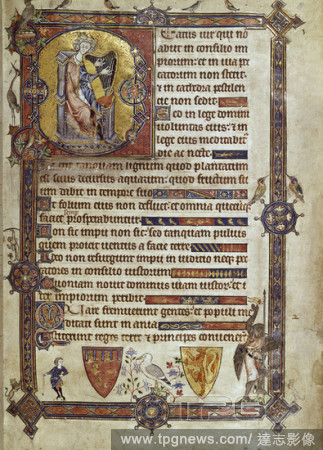 Eatus uir qui nō
abiit in consilio im
piorum: et in uia pec
catorum non stetit:
et in cathedra pestilen
cie non sedit.
Sed in lege domini
uoluntas eius: et in
lege eius meditabit
die ac nocte.
tanquam lignum quod plantatum
est secus decursus aquarum: quod fructum su
um dabit in tempore suo
Et folium eius non defluet: et omnia quecunq
faciet prosperabuntur.
Non sic impii non sic: sed tanquam puluis
quem proicit uentus a facie terre.
Ideo non resurgunt impii in iudicio: neq; pec
catores in consilio iustorum.
Quoniam nouit dominus uiam iustorum: et
iter impiorum peribit.
Quare fremuerunt gentes: et populi me
ditati sunt inania
Astiterunt reges terre et principes conuenerūt
TPG
www.tpgnews.com / 達志影像